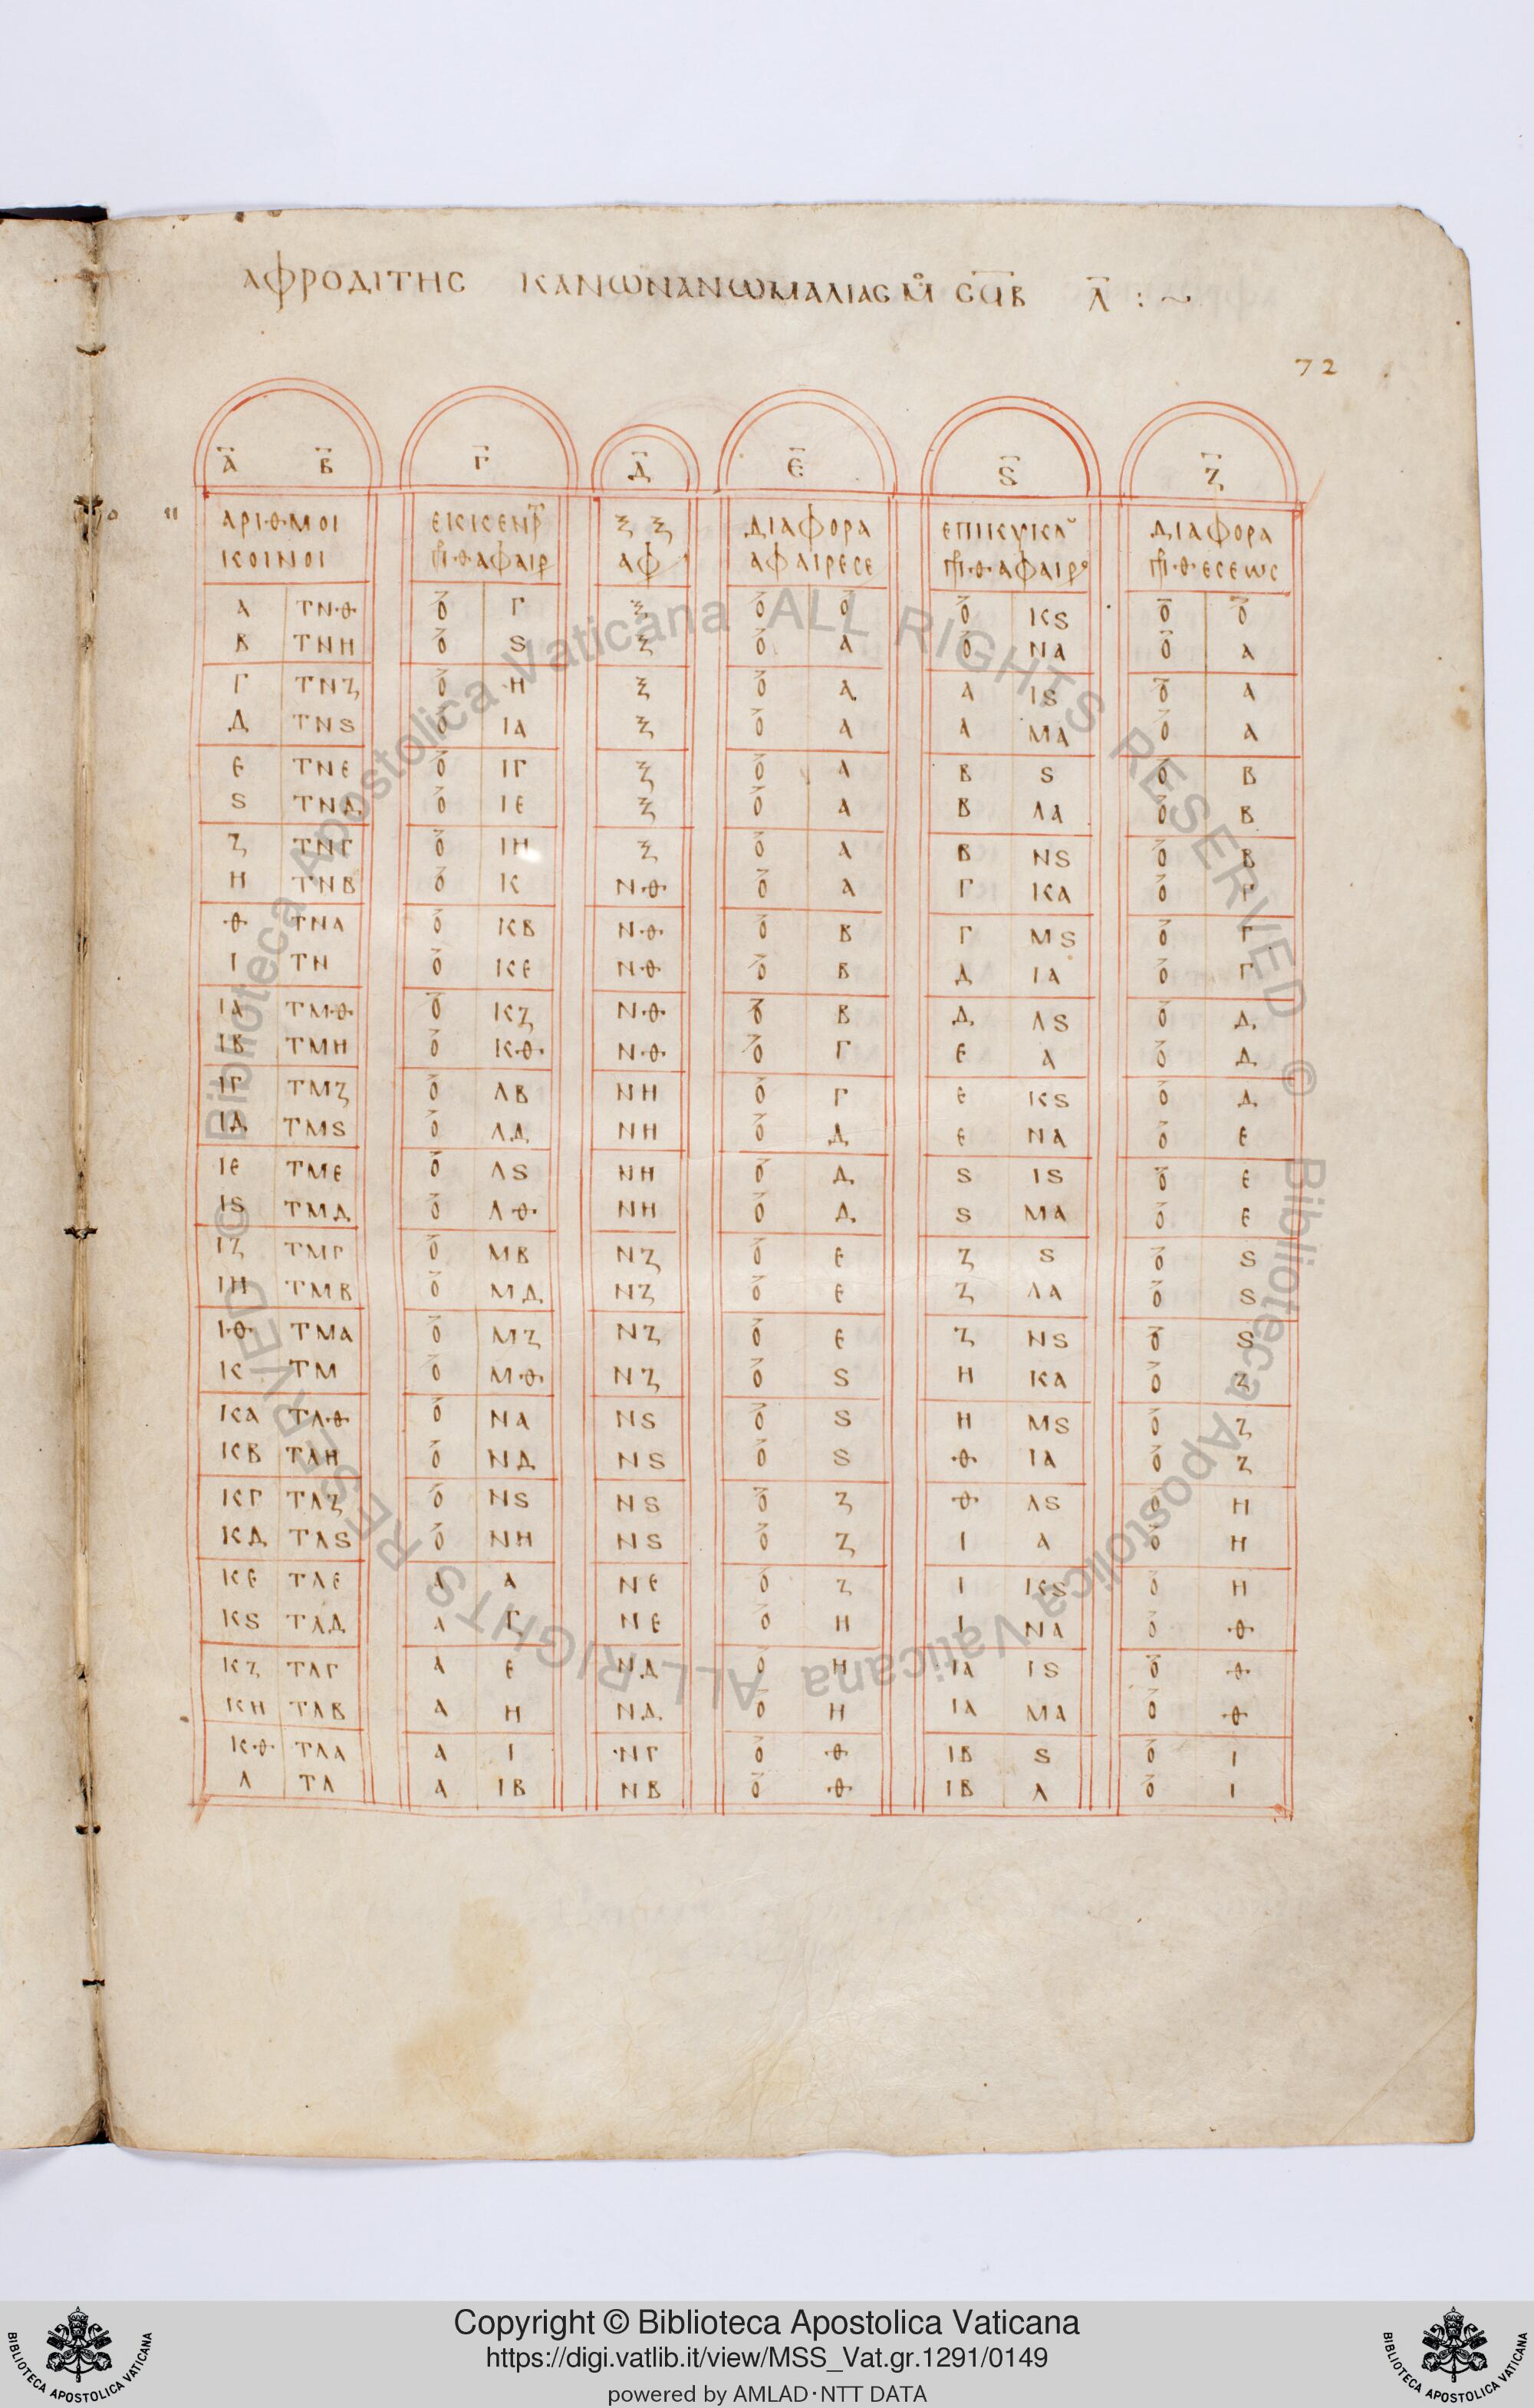 ΑΦΡΟΔΙΤΗΣ ΚΑΝΩΝ ΑΝΩΜΑΛΙΑΣ
72
Α Β Γ Δ Ε Ϛ Ζ
ΑΡΙΘΜΟΙ ΕΚΚΕΝΡ Ξ Ξ ΔΙΑΦΟΡΑ ΕΠΙΚΥΚΛ ΔΙΑΦΟΡΑ
ΚΟΙΝΟΙ ΠΘΑΦΑΙΡ ΑΦ ΑΦΑΙΡΕΣΕ ΠΘΑΦΑΙΡ ΠΘΕΣΕΩΣ
Α ΤΝΘ Ο Γ Ξ Ο Ο Ο ΚϚ Ο Ο
Β ΤΝΗ Ο Ϛ Ξ Ο Α Ο ΝΑ Ο Α
Γ ΤΝΖ Ο Η Ξ Ο Α Α ΙϚ Ο Α
Δ ΤΝϚ Ο ΙΑ Ξ Ο Α Α ΜΑ Ο Α
Ε ΤΝΕ Ο ΙΓ Ξ Ο Α Β Ϛ Ο Β
Ϛ ΤΝΔ Ο ΙΕ Ξ Ο Α Β ΛΑ Ο Β
Ζ ΤΝΓ Ο ΙΗ Ξ Ο Α Β ΝϚ Ο Β
Η ΤΝΒ Ο Κ ΝΘ Ο Α Γ ΚΑ Ο Γ
Θ ΤΝΑ Ο ΚΒ ΝΘ Ο Β Γ ΜϚ Ο Γ
Ι ΤΝ Ο ΚΕ ΝΘ Ο Β Δ ΙΑ Ο Γ
ΙΑ ΤΜΘ Ο ΚΖ ΝΘ Ο Β Δ ΛϚ Ο Δ
ΙΒ ΤΜΗ Ο ΚΘ ΝΘ Ο Γ Ε Α Ο Δ
ΙΓ ΤΜΖ Ο ΛΒ ΝΗ Ο Γ Ε ΚϚ Ο Δ
ΙΔ ΤΜϚ Ο ΛΔ ΝΗ Ο Δ Ε ΝΑ Ο Ε
ΙΕ ΤΜΕ Ο ΛϚ ΝΗ Ο Δ Ϛ ΙϚ Ο Ε
ΙϚ ΤΜΔ Ο ΛΘ ΝΗ Ο Δ Ϛ ΜΑ Ο Ε
ΙΖ ΤΜΓ Ο ΜΒ ΝΖ Ο Ε Ζ Ϛ Ο Ϛ
ΙΗ ΤΜΒ Ο ΜΔ ΝΖ Ο Ε Ζ ΛΑ Ο Ϛ
ΙΘ ΤΜΑ Ο ΜΖ ΝΖ Ο Ε Ζ ΝϚ Ο Ϛ
Κ ΤΜ Ο ΜΘ ΝΖ Ο Ϛ Η ΚΑ Ο Ζ
ΚΑ ΤΛΘ Ο ΝΑ ΝϚ Ο Ϛ Η ΜϚ Ο Ζ
ΚΒ ΤΛΗ Ο ΝΔ ΝϚ Ο Ϛ Θ ΙΑ Ο Ζ
ΚΓ ΤΛΖ Ο ΝϚ ΝϚ Ο Ζ Θ ΛϚ Ο Η
ΚΔ ΤΛϚ Ο ΝΗ ΝϚ Ο Ζ Ι Α Ο Η
ΚΕ ΤΛΕ Α Α ΝΕ Ο Ζ Ι ΚϚ Ο Η
ΚϚ ΤΛΔ Α Γ ΝΕ Ο Η Ι ΝΑ Ο Θ
ΚΖ ΤΛΓ Α Ε ΝΔ Ο Η ΙΑ ΙϚ Ο Θ
ΚΗ ΤΛΒ Α Η ΝΔ Ο Η ΙΑ ΜΑ Ο Θ
ΚΘ ΤΛΑ Α Ι ΝΓ Ο Θ ΙΒ Ϛ Ο Ι
Λ ΤΛ Α ΙΒ ΝΒ Ο Θ ΙΒ Λ Ο Ι
© Biblioteca Apostolica Vaticana ALL RIGHTS RESERVED © Biblioteca Apostolica Vaticana ALL RIGHTS RESERVED
Copyright © Biblioteca Apostolica Vaticana
https://digi.vatlib.it/view/MSS_Vat.gr.1291/0149
powered by AMLAD·NTT DATA
BIBLIOTECA APOSTOLICA VATICANA
BIBLIOTECA APOSTOLICA VATICANA